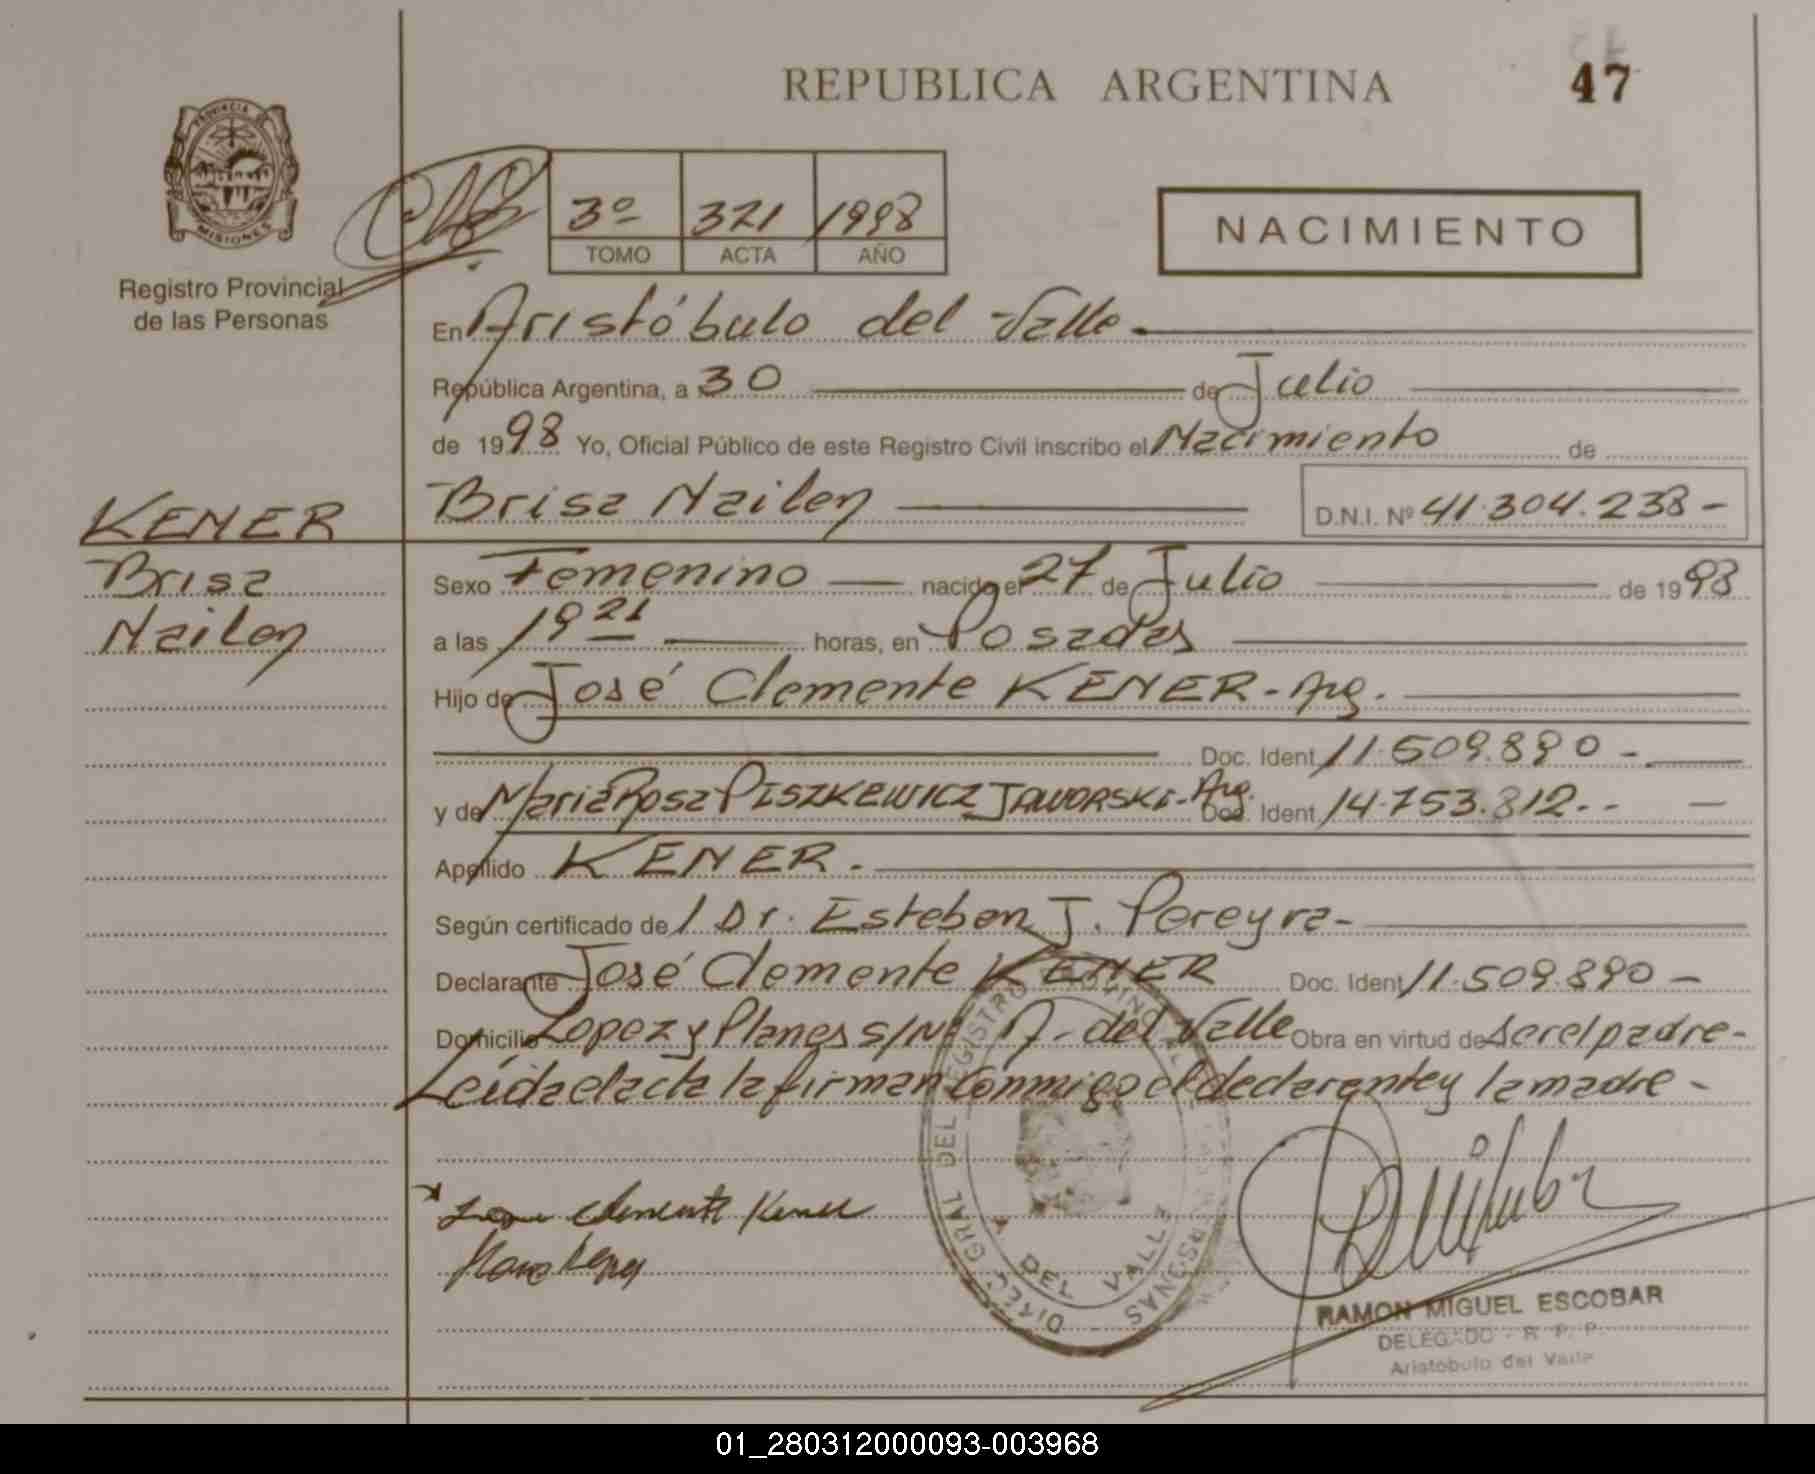 REPUBLICA ARGENTINA
47
PROVINCIA DE
MISIONES
Registro Provincial
de las Personas
3º 321 1998
TOMO ACTA AÑO
NACIMIENTO
En Aristóbulo del Valle.
República Argentina, a 30 de Julio
de 1998 Yo, Oficial Público de este Registro Civil inscribo el Nacimiento de
KENER
Brisa Nailen D.N.I. Nº 41.304.238-
Brisa
Nailen
Sexo Femenino nacido el 27 de Julio de 1998
a las 19 21 horas, en Posadas
Hijo de José Clemente KENER-Arg.
Doc. Ident 11.509.890-.
y de Maria Rosa PISZKEWICZ JAWORSKI-Arg. Doc. Ident 14.753.812--
Apellido KENER.
Según certificado de l Dr. Esteban J. Pereyra-
Declarante José Clemente KENER Doc. Ident 11.509.890-
Domicilio Lopez y Planes s/Nº A. del Valle Obra en virtud de ser el padre-
Leida el acta la firman conmigo el declarante y la madre-
DIREC. GRAL DEL REGISTRO PROVINCIAL DE LAS PERSONAS
A DEL VALLE
Jose Clemente Kener
RAMON MIGUEL ESCOBAR
DELEGADO - R. P. P.
Aristobulo del Valle
01_280312000093-003968